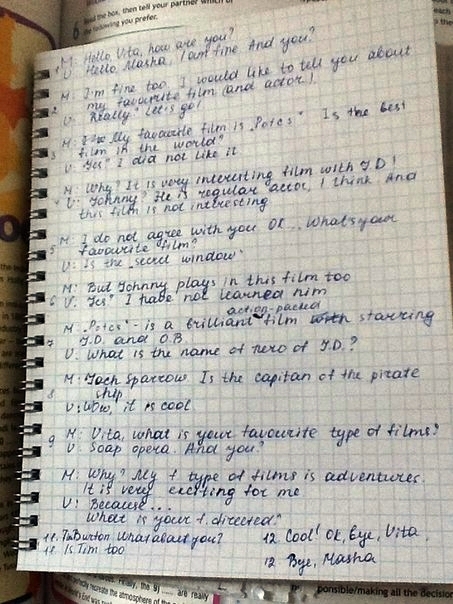 6 Read the box, then tell your partner which of
the following you prefer.
1 M: Hello, Vita, how are you?
V: Hello, Masha, I am fine. And you?
2 M: I'm fine too. I would like to tell you about
my favourite film (and actor).
V: Really? Let's go!
3 M: My favourite film is "Potcs" Is the best
film in the world"
V: Yes? I did not like it
4 M: Why? It is very interesting film with J.D!
V: Johnny? He is regular actor, I think. And
this film is not interesting
5 M: I do not agree with you OK... What's your
favourite film?
V: Is the secret window.
6 M: But Johnny plays in this film too
V: Yes? I have not learned him
action-packed
7 M: "Potcs" - is a brilliant film with starring
J.D. and O.B.
V: What is the name of hero of J.D.?
8 M: Jack Sparrow. Is the capitan of the pirate
ship
V: Wow, it is cool
9 M: Vita, what is your favourite type of films?
V: Soap opera. And you?
M: Why? My f type of films is adventures.
It is very exciting for me
V: Because...
What is your f. directed?
11. Tim Burton What about you?
11. Is Tim too
12. Cool! OK, Bye, Vita.
12. Bye, Masha
perfectly recreate the atmosphere of the
are really
ponsible/making all the decision